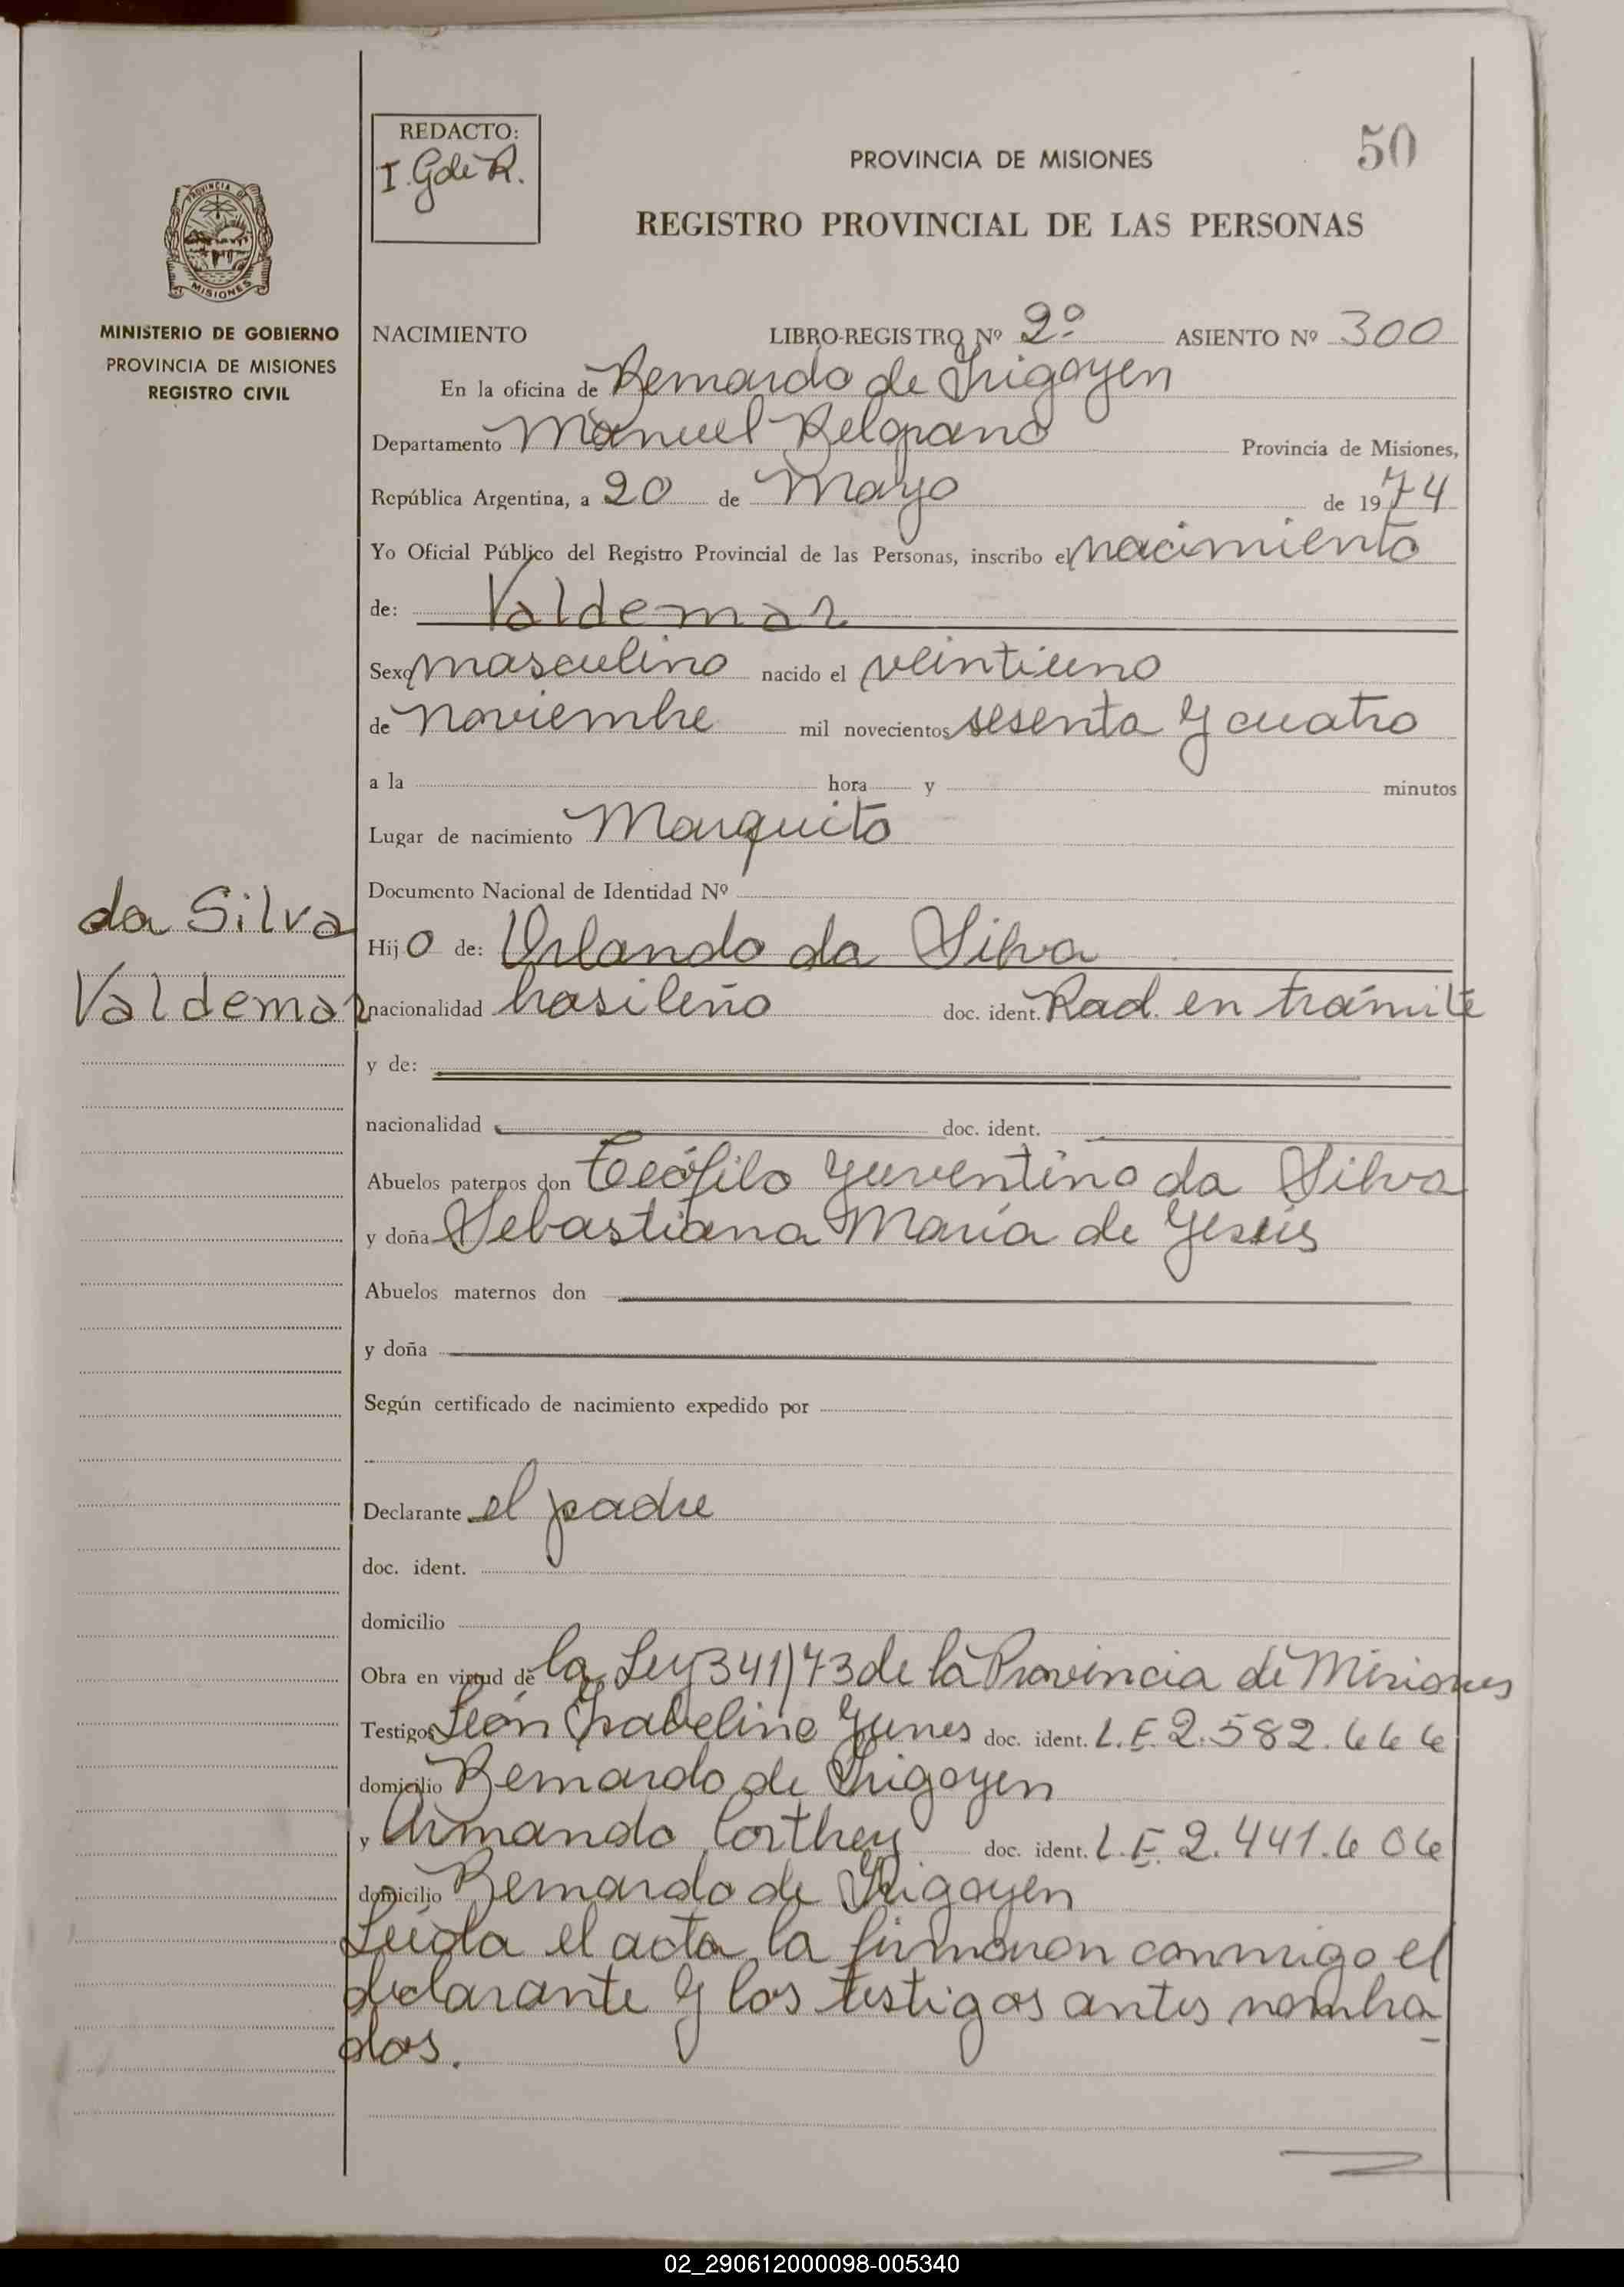 REDACTO:
I. G de R.
50
PROVINCIA DE MISIONES
REGISTRO PROVINCIAL DE LAS PERSONAS
PROVINCIA DE
MISIONES
MINISTERIO DE GOBIERNO
PROVINCIA DE MISIONES
REGISTRO CIVIL
NACIMIENTO LIBRO-REGISTRO Nº 2º ASIENTO Nº 300
En la oficina de Bernardo de Irigoyen
Departamento Manuel Belgrano Provincia de Misiones,
República Argentina, a 20 de Mayo de 1974
Yo Oficial Público del Registro Provincial de las Personas, inscribo el nacimiento
de: Valdemar
Sexo masculino nacido el veintiuno
de noviembre mil novecientos sesenta y cuatro
a la hora y minutos
Lugar de nacimiento Marquito
Documento Nacional de Identidad Nº
da Silva
Valdemar
Hijo de: Orlando da Silva
nacionalidad brasileño doc. ident. Rad. en trámite
y de:
nacionalidad doc. ident.
Abuelos paternos don Teófilo Yuventino da Silva
y doña Sebastiana María de Yesús
Abuelos maternos don
y doña
Según certificado de nacimiento expedido por
Declarante el padre
doc. ident.
domicilio
Obra en virtud de la Ley 341/73 de la Provincia de Misiones
Testigos León Isabelino Yunes doc. ident. L.E. 2.582.666
domicilio Bernardo de Irigoyen
y Armando Corthey doc. ident. L.E. 2.441.606
domicilio Bernardo de Irigoyen
Leída el acta la firmaron conmigo el
declarante y los testigos antes nombra
dos.
02_290612000098-005340